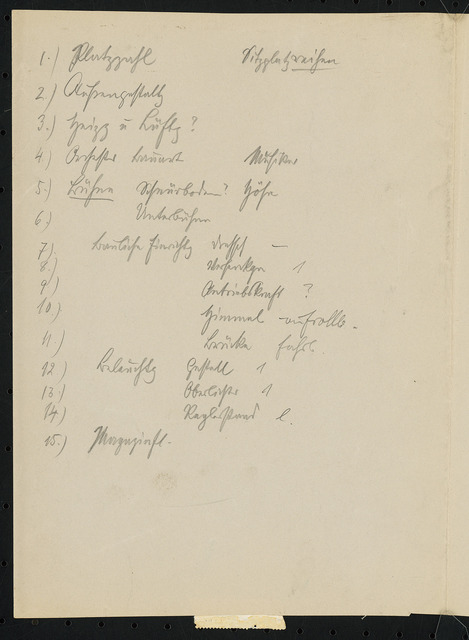 1.) Platzzahl Sitzplatzreihen
2.) Außengestaltg
3.) Heizg u Lüftg ?
4.) Orchester Bauart Musiker
5.) Bühne Schnürboden? Höhe
6.) Unterbühne
7.) bauliche Einrichtg
8.) Versenkgn 1
9.) Antriebskraft ?
10.) Himmel aufrollb.
11) Brücke fahrb.
12) Beleuchtg Gestell 1
13.) Oberlichter 1
14) Reglerstand l.
15.) Magazinfl.